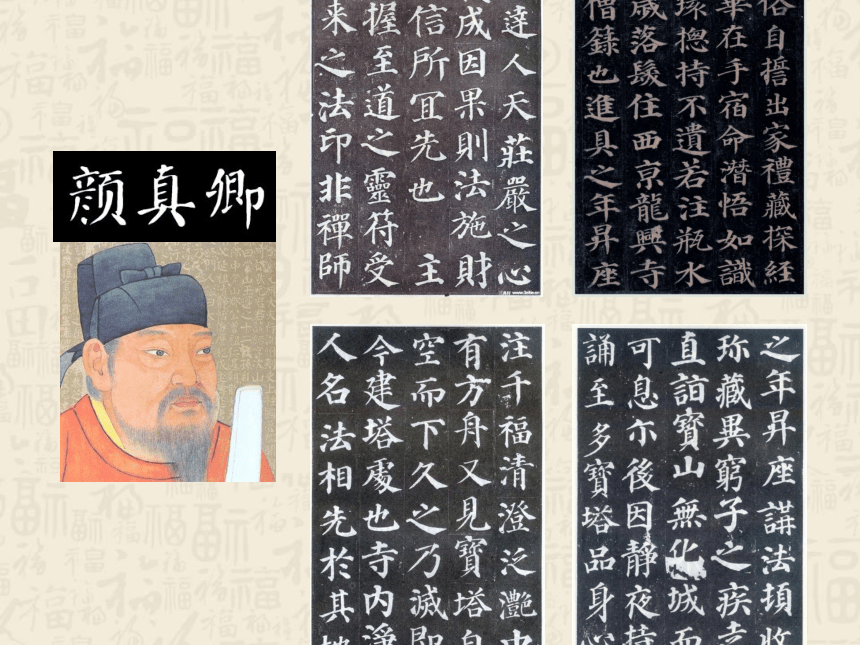 颜真卿
達人天莊嚴之心
成因果則法施財
信所冝先也 主
握至道之靈符受
来之法印非禪師
俗自誓出家禮藏探経
華在手宿命潛悟如識
環揔持不遺若注瓶水
歲落髮住西京龍興寺
僧籙也進具之年昇座
注千福清澄泛灔中
有方舟又見寶塔自
空而下久之乃滅即
今建塔處也寺内淨
人名法相先於其地
之年昇座講法頃收
珎藏異窮子之疾走
直詣寶山無化城而
可息尓後因靜夜持
誦至多寶塔品身心